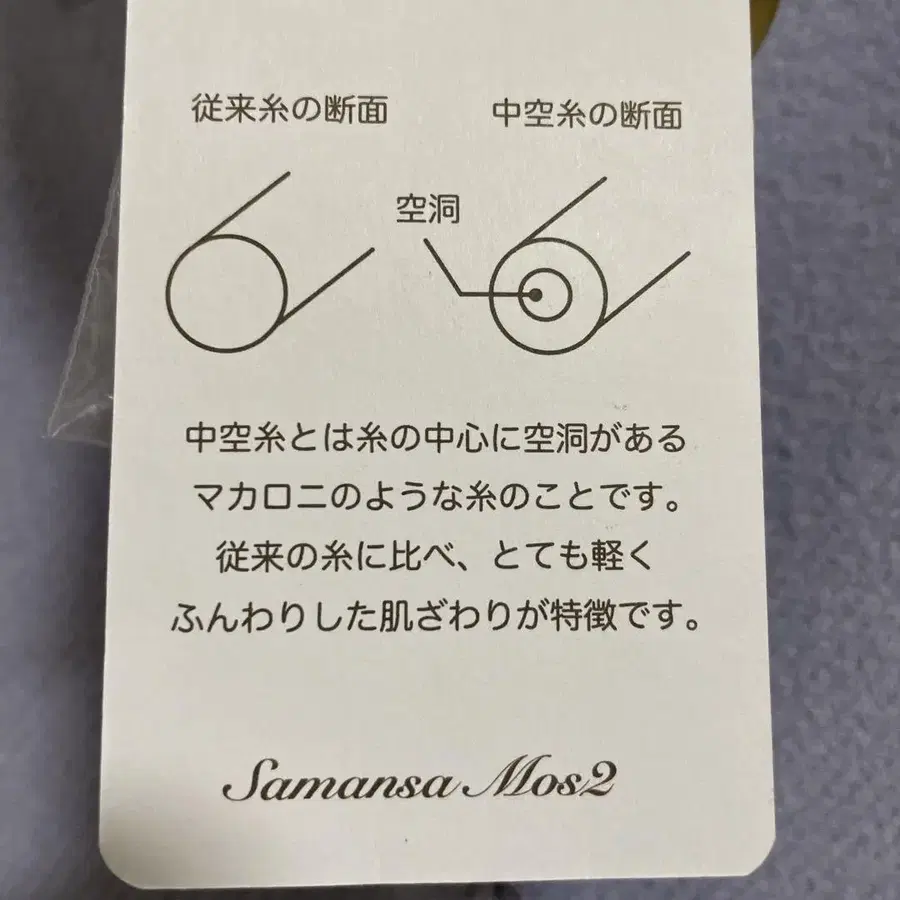 従来糸の断面
中空糸の断面
空洞
中空糸とは糸の中心に空洞がある
マカロニのような糸のことです。
従来の糸に比べ、とても軽く
ふんわりした肌ざわりが特徴です。
Samansa Mos2